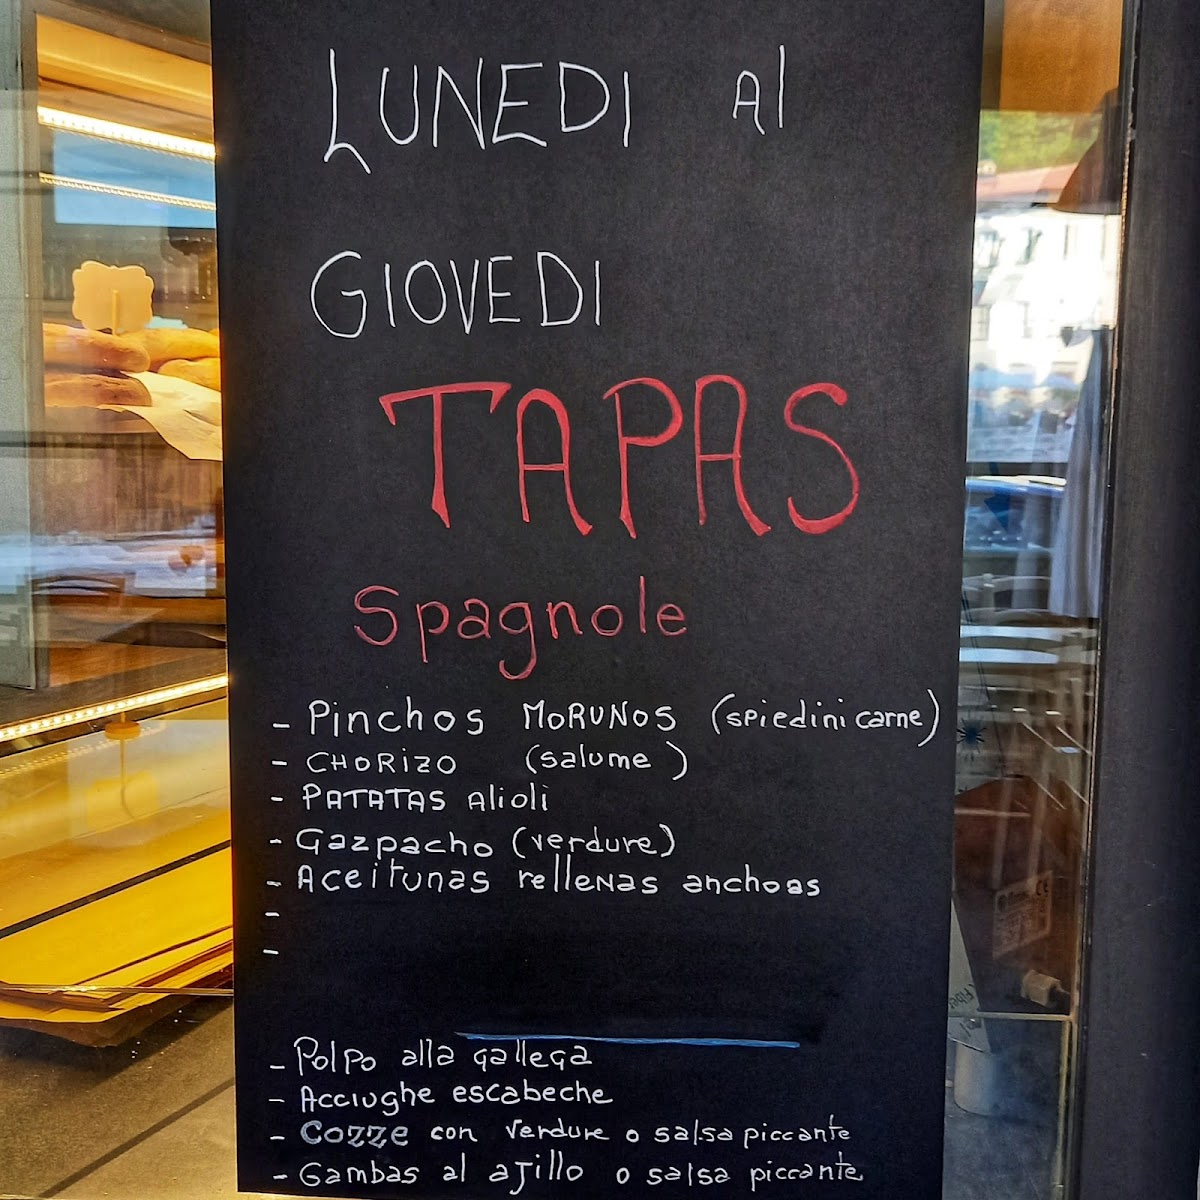 LUNEDI al
GIOVEDI
TAPAS
Spagnole
- Pinchos MORUNOS (spiedini carne)
- CHORIZO (salume)
- PATATAS Alioli
- Gazpacho (verdure)
- Aceitunas rellenas anchoas
-
-
- Polpo alla gallega
- Acciughe escabeche
- Cozze con verdure o salsa piccante
- Gambas al ajillo o salsa piccante